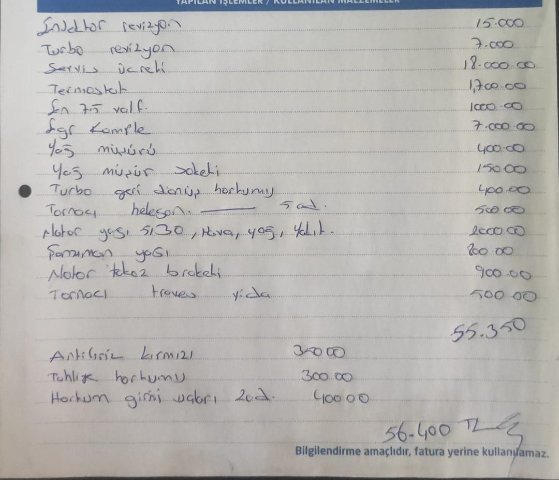 YAPILAN İŞLEMLER / KULLANILAN MALZEMELER
Enjektör revizyon 15.000
Turbo revizyon 7.000
Servis ücreti 18.000.00
Termostat 1,700.00
valf. 1000.00
Egr Komple 7.000.00
Yağ müşürü 400.00
Yağ müşür soketi 150.00
Turbo geri dönüş hortumu 400.00
Tornacı helezon. 5 ad. 500.00
Motor yağı 5/30, Hava, yağ, Yakıt. 2000.00
Şanzıman yağı
Motor takoz braketi 900.00
Tornacı travers vida 500.00
55.350
Antifiriz kırmızı
Tahliye hortumu 300.00
Hortum girişi 2ad. 400.00
56.400 TL
Bilgilendirme amaçlıdır, fatura yerine kullanılamaz.